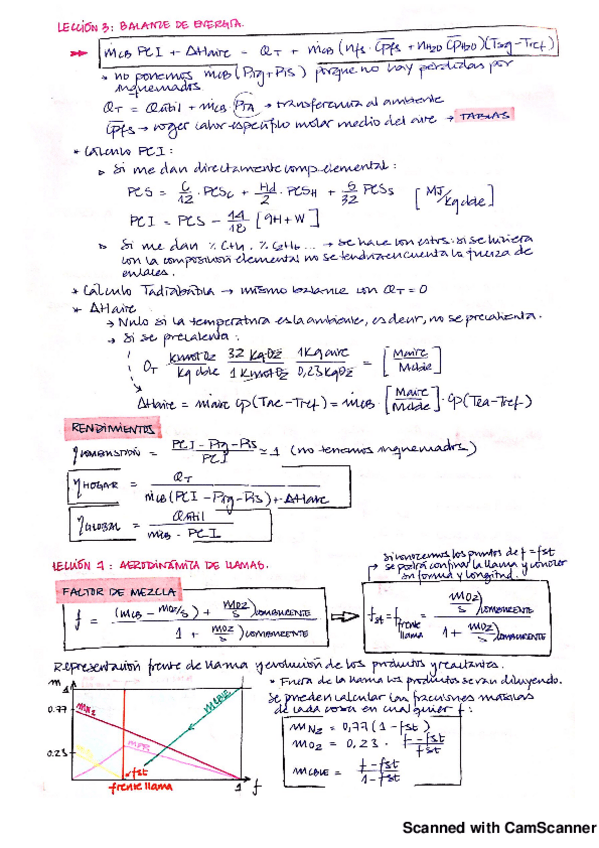 LECCIÓN 3: BALANCE DE ENERGÍA.
ṁcb PCI + ΔHaire = QT + ṁcb (nfs · C̄pfs + nH2O C̄pH2O)(Tsg - Tref)
* no ponemos ṁcb (Pig + Pis) porque no hay pérdidas por inquemados
QT = Qútil + ṁcb PTA → transferencia al ambiente
C̄pfs → coger calor específico molar medio del aire → TABLAS
* Cálculo PCI:
Si me dan directamente comp. elemental:
PCS = C/12 · PCSC + Hd/2 · PCSH + S/32 PCSS [MJ/Kg cble]
PCI = PCS - 44/18 [9H + W]
Si me dan % CH4, % C2H6 ... → se hace con estos: si se hiciera
con la composición elemental no se tendría en cuenta la fuerza de
enlaces.
* Cálculo Tadiabática → mismo balance con QT = 0
* ΔHaire
→ Nulo si la temperatura es la ambiente, es decir, no se precalienta.
→ Si se precalienta:
OT Kmol O2/Kg cble 32 Kg O2/1 Kmol O2 1 Kg aire/0,23 Kg O2 = [Maire/Mcble]
ΔHaire = ṁaire Cp (Tae - Tref) = ṁcb · [Maire/Mcble] · Cp (Tea - Tref)
RENDIMIENTOS
ηCOMBUSTIÓN = PCI - Pig - Pis/PCI = 1 (no tenemos inquemados)
ηHOGAR = QT/ṁcb (PCI - Pig - Pis) + ΔHaire
ηGLOBAL = Qútil/ṁcb · PCI
Si conocemos los puntos de f = fst
→ se podrá confinar la llama y conocer
su forma y longitud.
LECCIÓN 7: AERODINÁMICA DE LLAMAS.
FACTOR DE MEZCLA
f = (mcb - mO2/s) + mO2/s)COMBURENTE/1 + mO2/s)COMBURENTE
fst = f frente llama = mO2/s)COMBURENTE/1 + mO2/s)COMBURENTE
Representación frente de llama y evolución de los productos y reactantes.
* Fuera de la llama los productos se van diluyendo.
Se pueden calcular las fracciones másicas
de cada cosa en cualquier f:
mN2 = 0,77 (1 - fst)
mO2 = 0,23 · f - fst/fst
mCBLE = f - fst/1 - fst
m
1
0.77
mN2
mCBLE
0.23
mPR
fst
1
f
frente llama
Scanned with CamScanner